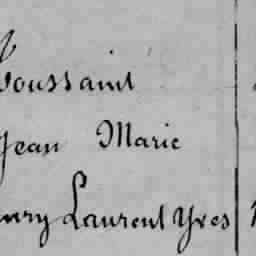 Toussaint
Jean Marie
Laurent Yves